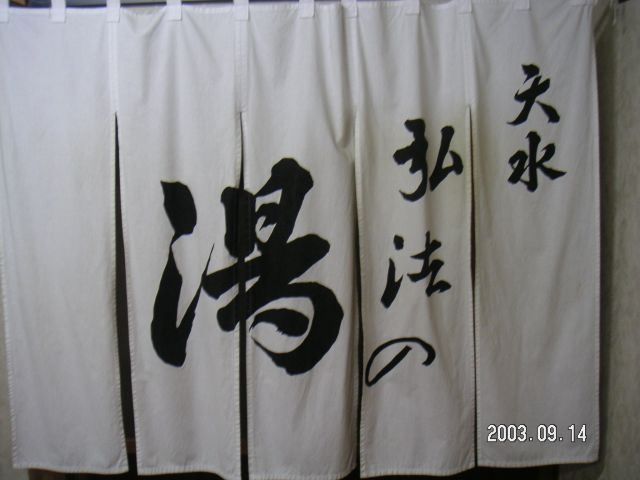 天水
弘法の
湯
2003.09.14